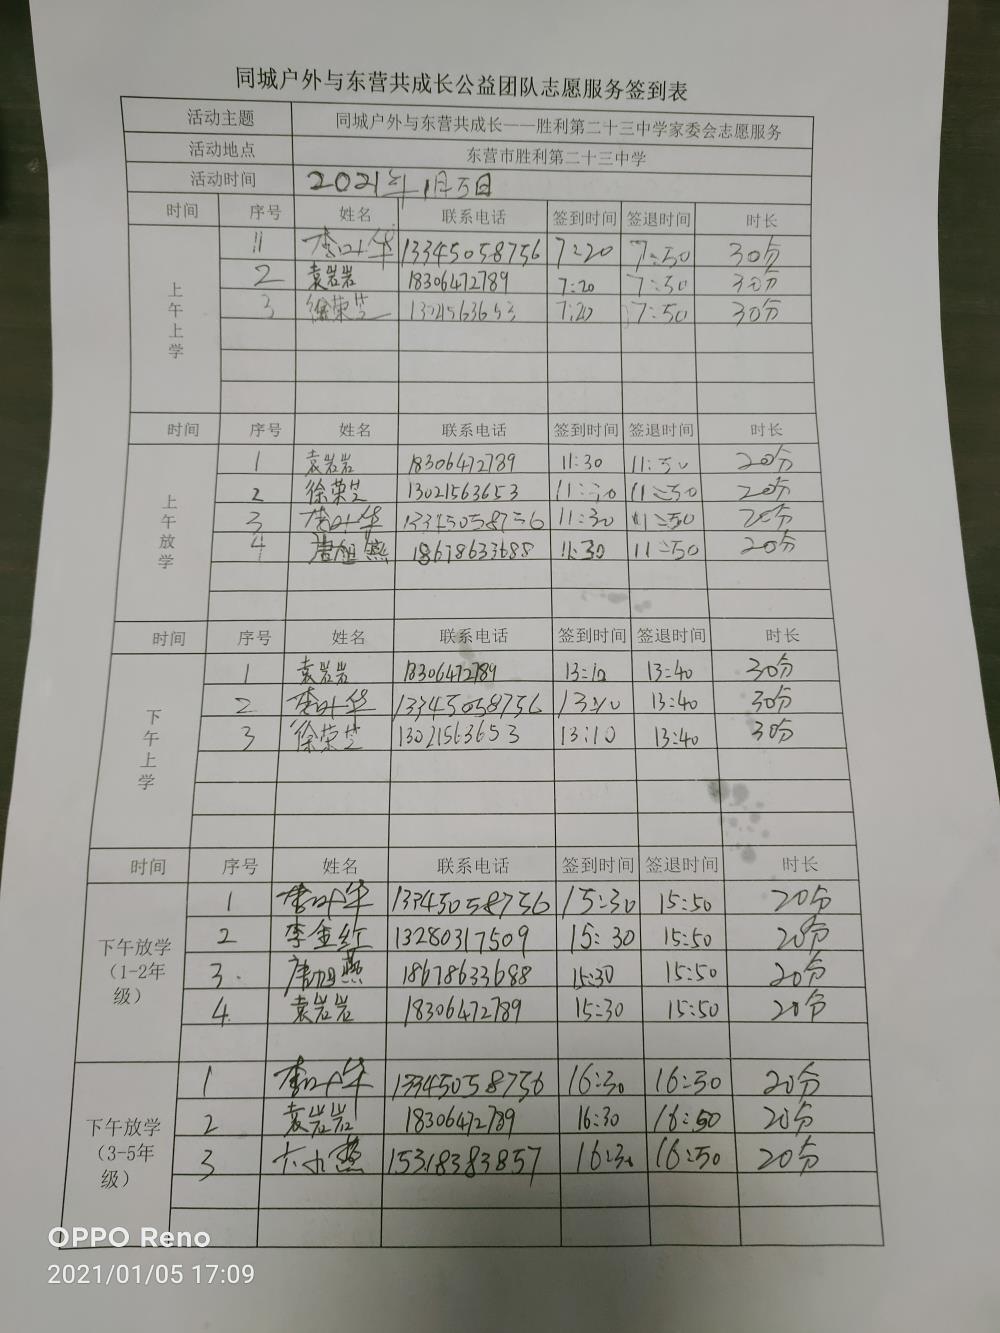 同城户外与东营共成长公益团队志愿服务签到表
活动主题 同城户外与东营共成长——胜利第二十三中学家委会志愿服务
活动地点 东营市胜利第二十三中学
活动时间 2021年1月5日
时间 序号 姓名 联系电话 签到时间 签退时间 时长
上午上学
李叶华 13345058756 7:20 7:50 30分
2 袁岩岩 18306472789 7:20 7:50 30分
3 徐荣芝 13021563653 7:20 7:50 30分
时间 序号 姓名 联系电话 签到时间 签退时间 时长
上午放学
1 袁岩岩 18306472789 11:30 11:50 20分
2 徐荣芝 13021563653 11:30 11:50 20分
3 李叶华 13345058756 11:30 11:50 20分
4 唐旭燕 18678633688 11:30 11:50 20分
时间 序号 姓名 联系电话 签到时间 签退时间 时长
下午上学
1 袁岩岩 18306472789 13:10 13:40 30分
2 李叶华 13345058756 13:10 13:40 30分
3 徐荣芝 13021563653 13:10 13:40 30分
时间 序号 姓名 联系电话 签到时间 签退时间 时长
下午放学（1-2年级）
1 李叶华 13345058756 15:30 15:50 20分
2 李金红 13280317509 15:30 15:50 20分
3. 唐旭燕 18678633688 15:30 15:50 20分
4. 袁岩岩 18306472789 15:30 15:50 20分
下午放学（3-5年级）
1 李叶华 13345058756 16:30 16:50 20分
2 袁岩岩 18306472789 16:30 16:50 20分
3 15318383857 16:30 16:50 20分
OPPO Reno
2021/01/05 17:09